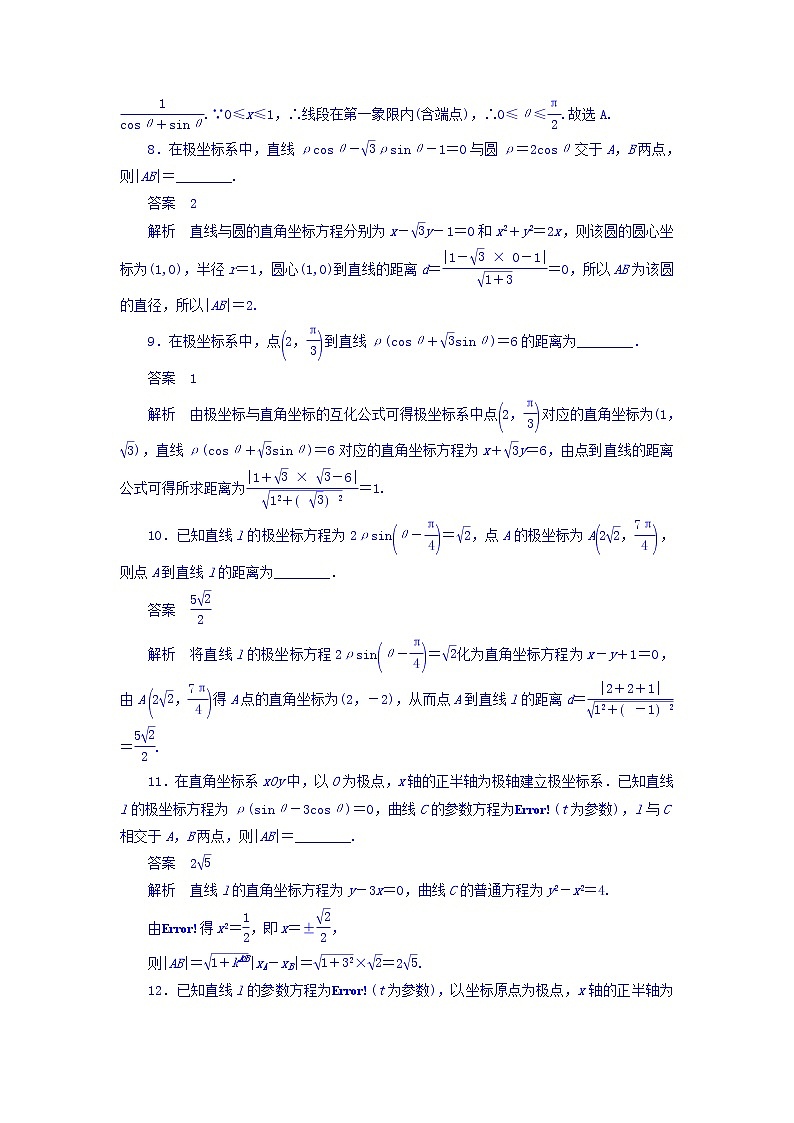 1/(cos θ＋sin θ).∵0≤x≤1，∴线段在第一象限内(含端点)，∴0≤θ≤π/2.故选 A.
8．在极坐标系中，直线 ρcos θ－√3ρsin θ－1＝0 与圆 ρ＝2cos θ 交于 A，B 两点，
则|AB|＝________.
答案　2
解析　直线与圆的直角坐标方程分别为 x－√3y－1＝0 和 x²＋y²＝2x，则该圆的圆心坐
标为(1,0)，半径 r＝1，圆心(1,0)到直线的距离 d＝|1－√3 × 0－1|/√(1＋3)＝0，所以 AB 为该圆
的直径，所以|AB|＝2.
9．在极坐标系中，点(2，π/3)到直线 ρ(cos θ＋√3sin θ)＝6 的距离为________.
答案　1
解析　由极坐标与直角坐标的互化公式可得极坐标系中点(2，π/3)对应的直角坐标为(1，
√3)，直线 ρ(cos θ＋√3sin θ)＝6 对应的直角坐标方程为 x＋√3y＝6，由点到直线的距离
公式可得所求距离为|1＋√3 × √3－6|/√(1²＋(√3)²)＝1.
10．已知直线 l 的极坐标方程为 2ρsin(θ－π/4)＝√2，点 A 的极坐标为 A(2√2，7π/4)，
则点 A 到直线 l 的距离为________.
答案　5√2/2
解析　将直线 l 的极坐标方程 2ρsin(θ－π/4)＝√2化为直角坐标方程为 x－y＋1＝0，
由 A(2√2，7π/4)得 A 点的直角坐标为(2，－2)，从而点 A 到直线 l 的距离 d＝|2＋2＋1|/√(1²＋(－1)²)
＝5√2/2.
11．在直角坐标系 xOy 中，以 O 为极点，x 轴的正半轴为极轴建立极坐标系．已知直线
l 的极坐标方程为 ρ(sin θ－3cos θ)＝0，曲线 C 的参数方程为Error!(t 为参数)，l 与 C
相交于 A，B 两点，则|AB|＝________.
答案　2√5
解析　直线 l 的直角坐标方程为 y－3x＝0，曲线 C 的普通方程为 y²－x²＝4.
由Error!得 x²＝1/2，即 x＝±√2/2，
则|AB|＝|x_A－x_B|＝√(1＋3²)×√2＝2√5.
12．已知直线 l 的参数方程为Error!(t 为参数)，以坐标原点为极点，x 轴的正半轴为